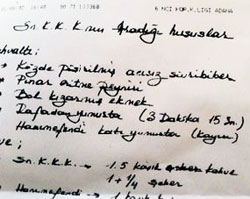 6 NCI KOR.K.LIGI ADANA
Sn. K.K.K.nın Aradığı hususlar
hvaltı;
Közde pişirilmiş acısız sivribiber
Pınar süzme peyniri
Bol kızarmış ekmek
Rafadan yumurta (3 Dakika 15 Sn.)
Hanımefendi katı yumurta (kayısı)
ve;
Sn. K.K.K. → 1.5 kaşık kahve
1 + 1/4 şeker
Hanımefendi → 1